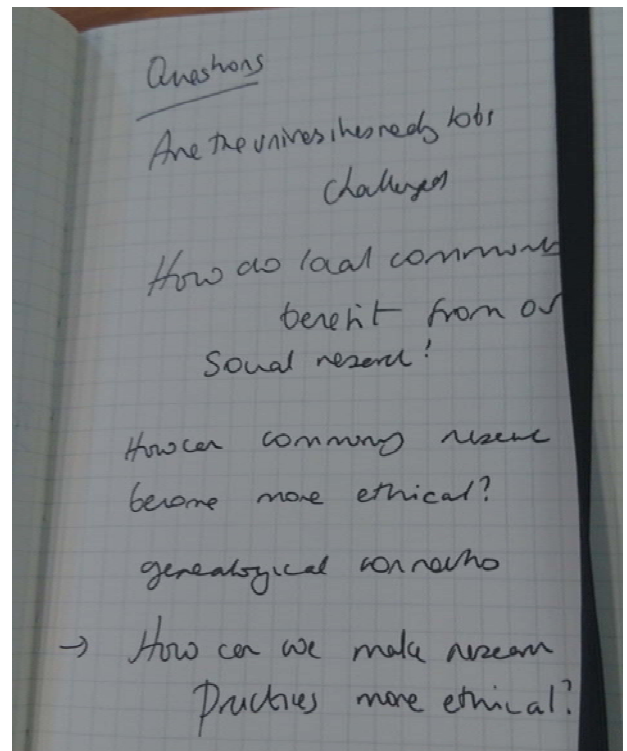 Questions
Are the universities ready to be
challenged
How do local communities
benefit from our
social research?
How can community research
become more ethical?
genealogical connection
→ How can we make research
practices more ethical?